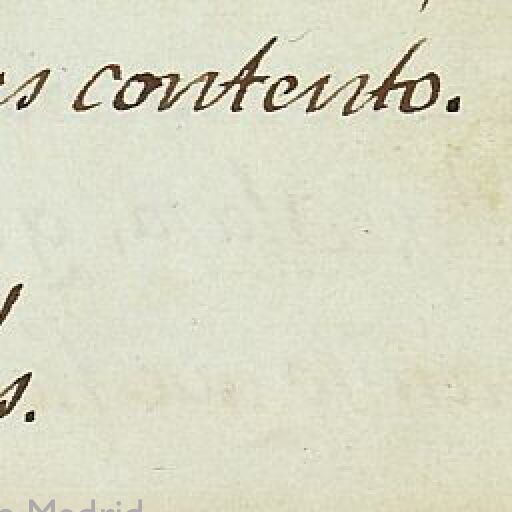 contento.
Madrid